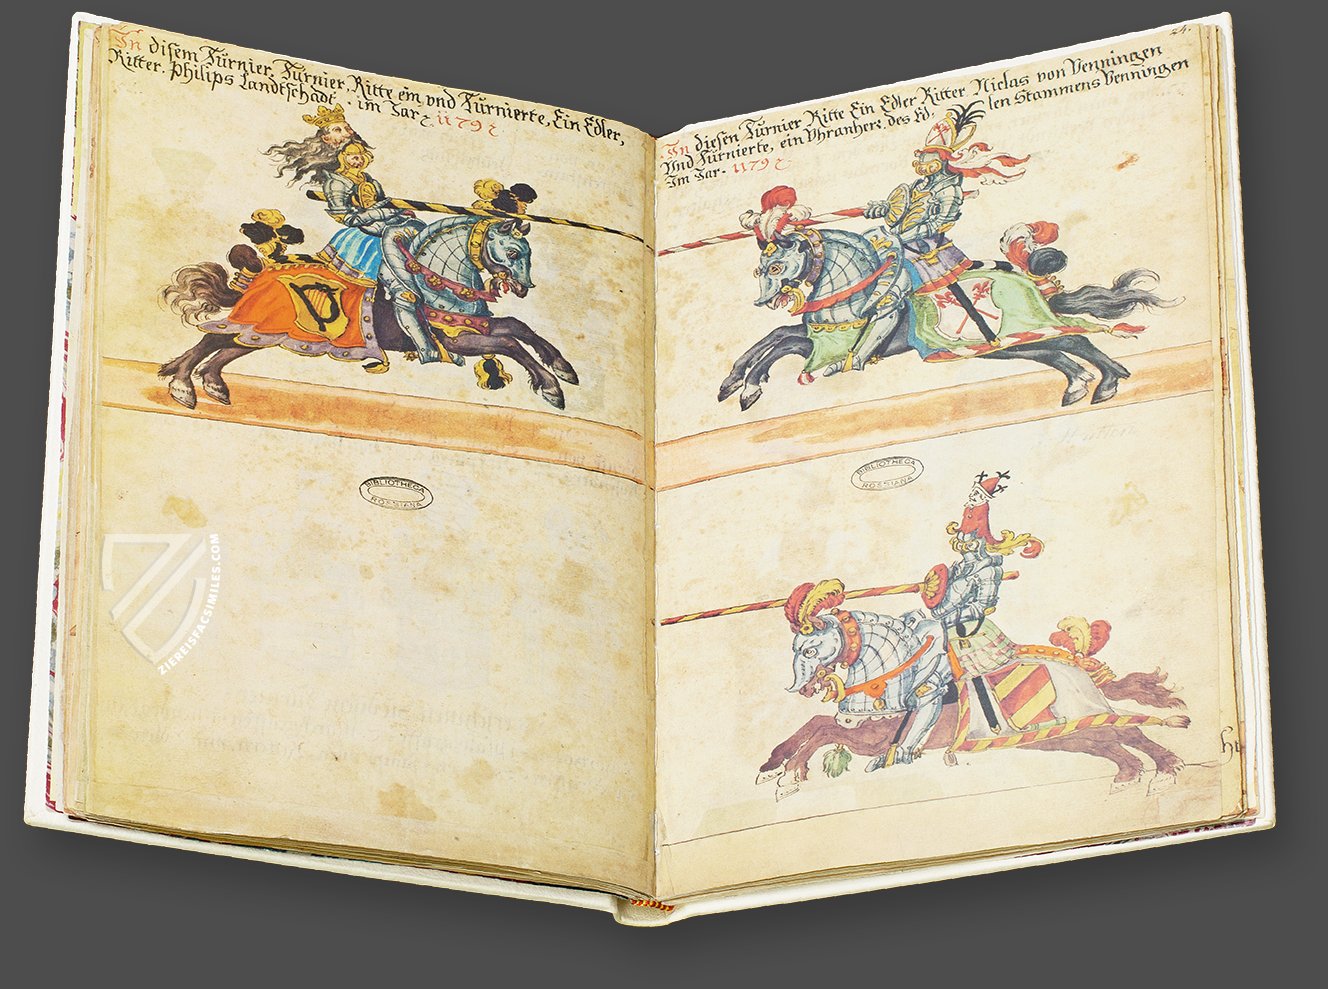 In disem Turnier, Turnier, Ritte ein vnd Turnierte, Ein Edler,
Ritter. Philips Landtschadt. im Jar. 1179
BIBLIOTHECA
ROSSIANA
ZIEREISFACSIMILES.COM
24.
In diesen Turnier Ritte Ein Edler Ritter Niclas von Venningen
Vnd Turnierte, ein Vhranherr. des Ed- len Stammens Venningen
Im Jar. 1179
BIBLIOTHECA
ROSSIANA